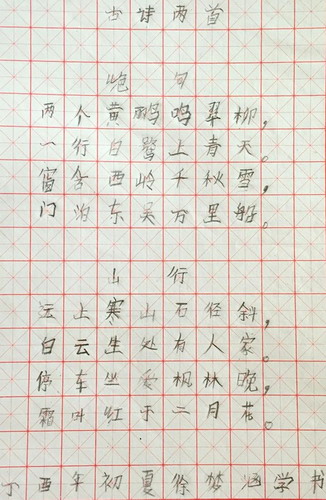 古诗两首
绝句
两个黄鹂鸣翠柳，
一行白鹭上青天。
窗含西岭千秋雪，
门泊东吴万里船。
山行
远上寒山石径斜，
白云生处有人家。
停车坐爱枫林晚，
霜叶红于二月花。
丁酉年初夏徐梦涵学书